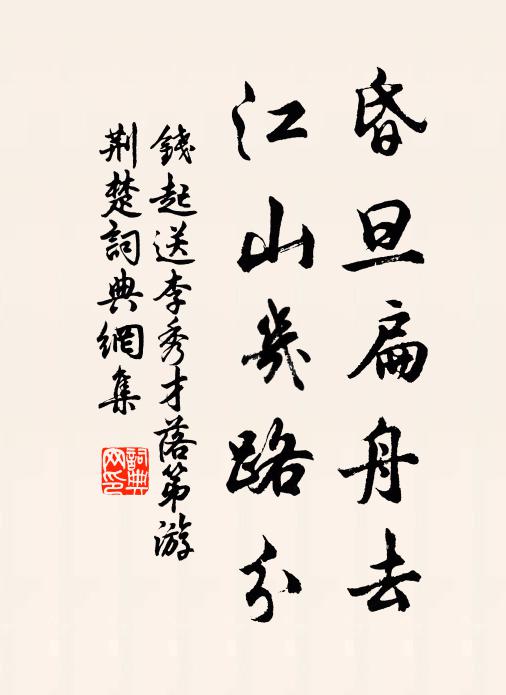 昏旦扁舟去
江山幾路分
錢起送李秀才落第游
荆楚詞典網集
詞典网印